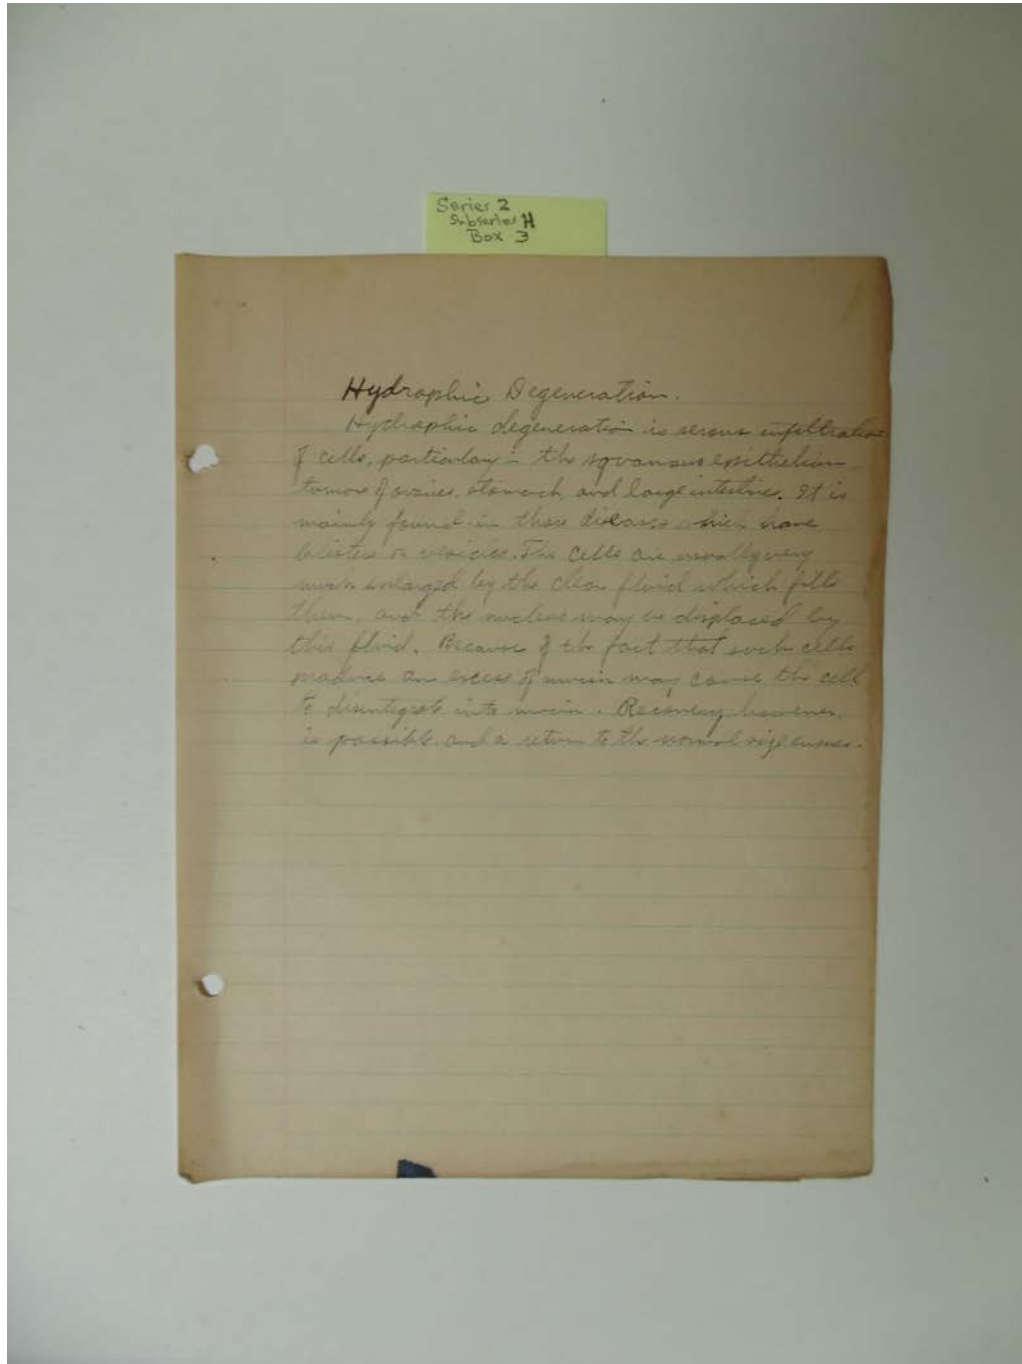 Series 2
Subseries H
Box 3
Hydraphic Degeneration.
Hydraphic degeneration is serous infiltration
of cells, particulary in the squamous epithelium
tumors of ovaries, stomach, and large intestine. It is
mainly found in those diseases which have
blisters or vesicles. The cells are usually very
much enlarged by the clear fluid which fills
them, and the nucleus may be displaced by
this fluid. Because of the fact that such cells
produce an excess of mucin may cause the cell
to disintegrate into mucin. Recovery however,
is possible and a return to the normal size ensues.